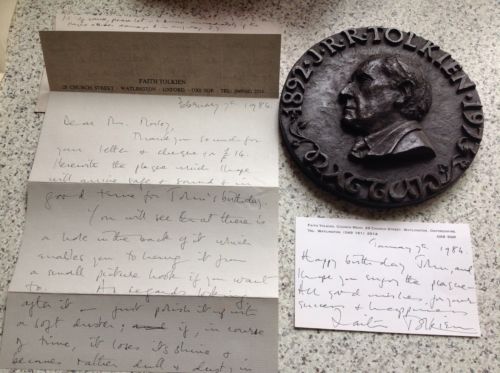 FAITH TOLKIEN
28 CHURCH STREET · WATLINGTON · OXFORD · OX9 5QR · TEL:
February 7th 1984.
Dear Mrs. Morley,
Thank you so much for
your letter & cheque for £14.
Herewith the plaque which I hope
will arrive safe & sound & in
good time for John's birthday.
You will see that there is
a hole in the back of it which
enables you to hang it from
a small picture hook if you want
to. As regards
after it – just polish it up with
a soft duster; and if, in course
of time, it loses its shine &
becomes rather dull & dusty in
1892 · J·R·R·TOLKIEN · 1973
FAITH TOLKIEN, 28 CHURCH STREET, WATLINGTON, OXFORDSHIRE.
TEL. WATLINGTON (049 161) 2514
January 7th 1984
Happy birthday John, and
I hope you enjoy the plaque –
All good wishes for your
success & happiness
Faith Tolkien